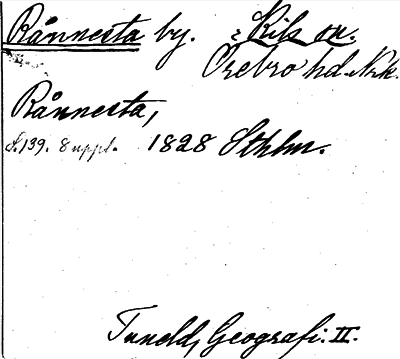 Rånnesta by. Kils sn.
Örebro hd. Nrk.
Rånnesta,
s. 139. 8 uppl. 1828 Sthlm.
Tuneld, Geografi. II.